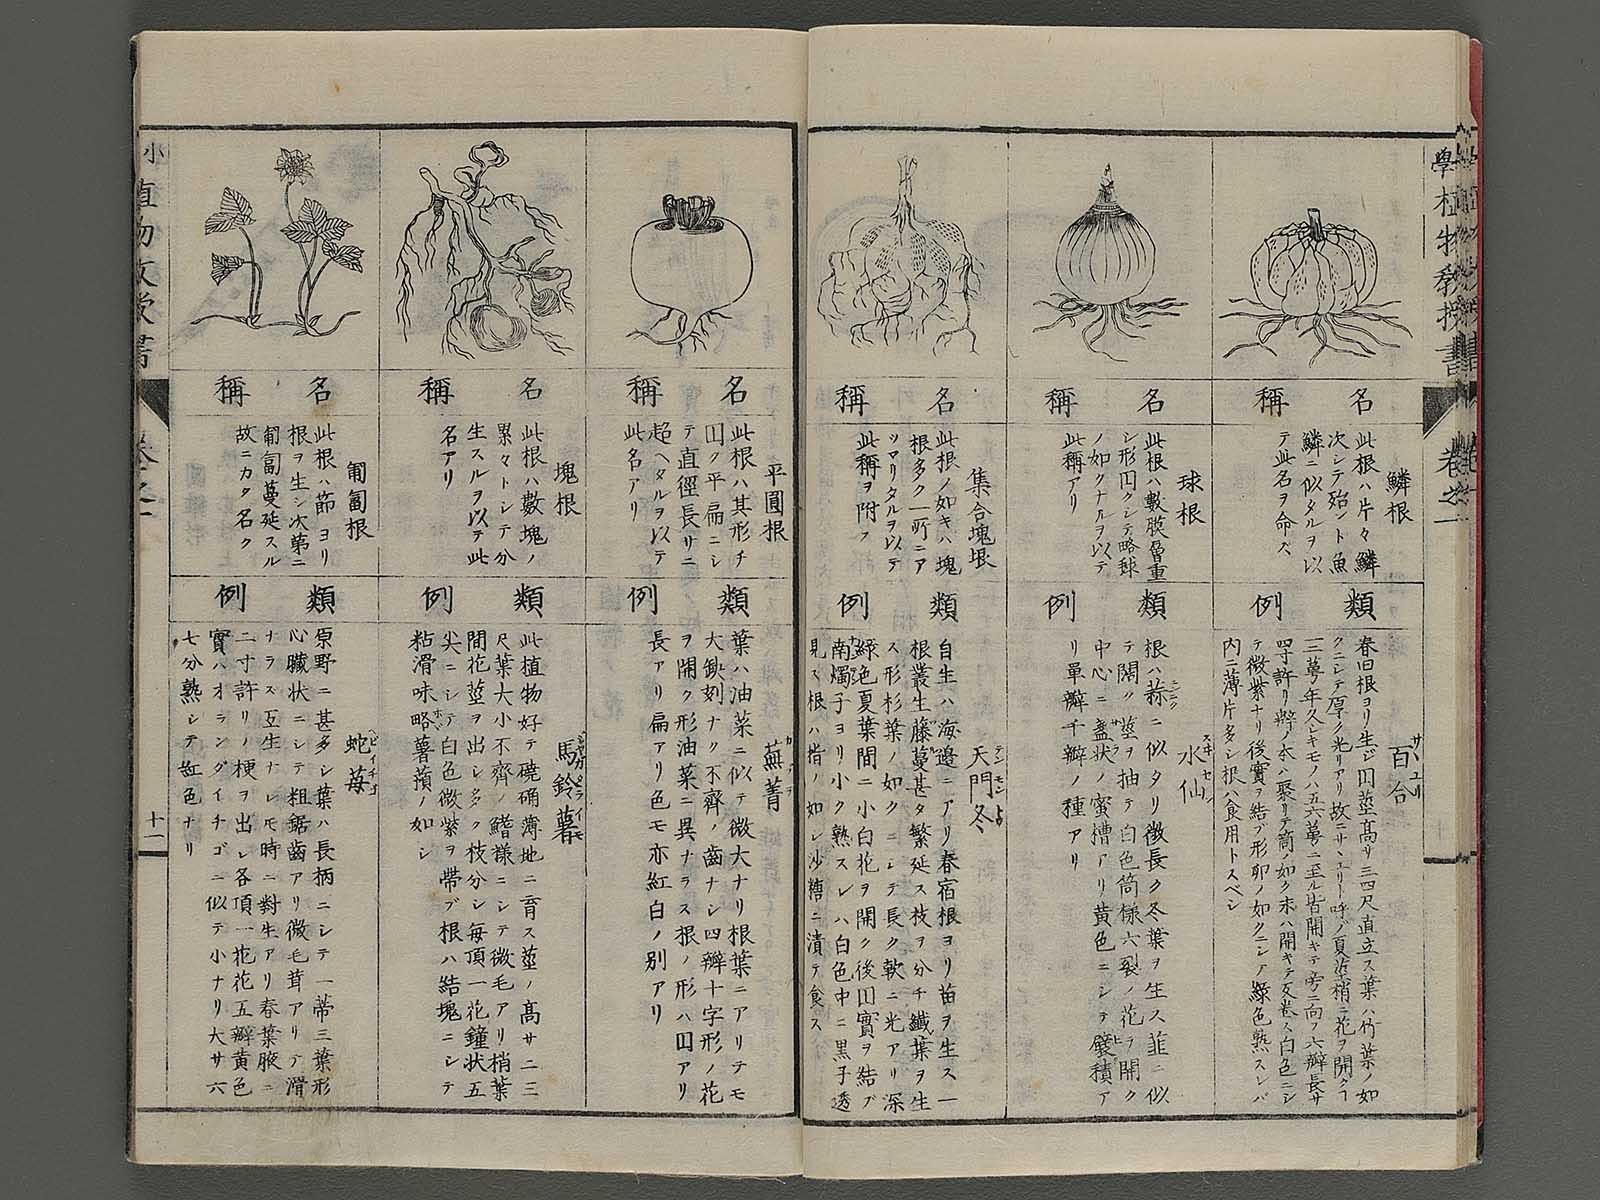 名稱
鱗根
此根ハ片々鱗
次シテ殆ント魚
鱗ニ似タルヲ以
テ此名ヲ命ス
類例
百合
春旧根ヨリ生ジ囘莖髙サ三四尺直立ス葉ハ竹葉ノ如
四寸許リ辨ノ本ハ聚リテ筒ノ如ク末ハ開キテ反巻ス白色ニシ
テ微紫ナリ後實ヲ結ブ形卵ノ如クニシテ綠色熟スレバ
内ニ薄片多シ根ハ食用トスベシ
名稱
球根
此根ハ數膜層重
シ形囘クシテ略球
ノ如クナルヲ以テ
此稱アリ
類例
水仙
根ハ蒜ニ似タリ微長ク冬葉ヲ生ス韮ニ似
テ闊ク莖ヲ抽テ白色筒様六裂ノ花ヲ開ク
中心ニ盞状ノ蜜槽アリ黄色ニシテ襞積ア
リ單瓣千瓣ノ種アリ
名稱
集合塊根
此根ノ如キハ塊
根多ク一所ニア
ツマリタルヲ以テ
此稱ヲ附ク
類例
天門冬
自生ハ海邉ニアリ春宿根ヨリ苗ヲ生ス一
根叢生藤蔓甚タ繁延ス枝ヲ分チ鍼葉ヲ生
ス形杉葉ノ如クニシテ長ク軟ニ光アリ深
綠色夏葉間ニ小白花ヲ開ク後囘實ヲ結ブ
南燭子ヨリ小ク熟スレハ白色中ニ黒子透
見ス根ハ指ノ如シ沙糖ニ漬テ食ス
名稱
平圓根
此根ハ其形チ
囘ク平扁ニシ
テ直徑長サニ
超ヘタルヲ以テ
此名アリ
類例
蕪菁
葉ハ油菜ニ似テ微大ナリ根葉ニアリテモ
大缺刻ナク不齊ノ齒ナシ四瓣十字形ノ花
ヲ開ク形油菜ニ異ナラス根ノ形ハ囘アリ
長アリ扁アリ色モ亦紅白ノ別アリ
名稱
塊根
此根ハ數塊ノ
累々トシテ分
生スルヲ以テ此
名アリ
類例
馬鈴薯
此植物好テ磽确薄地ニ育ス莖ノ髙サ二三
尺葉大小不齊ノ鰭様ニシテ微毛アリ梢葉
間花莖ヲ出シ多ク枝分シ毎頂一花鐘状五
尖ニシテ白色微紫ヲ帶ブ根ハ結塊ニシテ
粘滑味略薯蕷ノ如シ
名稱
匍匐根
此根ハ節ヨリ
根ヲ生シ次第ニ
匍匐蔓延スル
故ニカク名ク
類例
蛇苺
原野ニ甚多シ葉ハ長柄ニシテ一蒂三葉形
心臓状ニシテ粗鋸齒アリ微毛茸アリテ滑
ナラス互生ナレモ時ニ對生アリ春葉腋ニ
二寸許リノ梗ヲ出シ各頂一花花五瓣黄色
實ハオランダイチゴニ似テ小ナリ大サ六
七分熟シテ紅色ナリ
十一